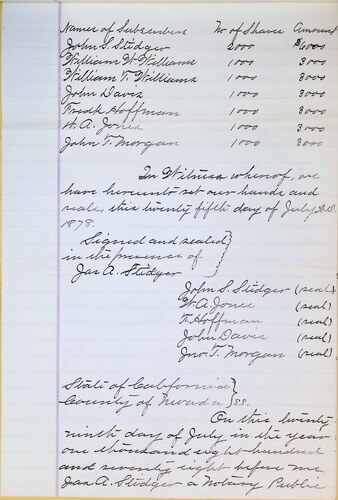 Names of Subscribers No of Shares Amount
John S. Stidger 2000 $6000
William W Williams 1000 3000
William T. Williams 1000 3000
John Davis 1000 3000
Fredk Hoffman 1000 3000
W. A. Jones 1000 3000
John T. Morgan 1000 3000
In Witness whereof, we
have hereunto set our hands and
seals, this twenty fifth day of July A.D.
1878.
Signed and sealed
in the presence of
Jas A. Stidger
John S. Stidger (seal)
W. A. Jones (seal)
F. Hoffman (seal)
John Davis (seal)
Jno. T. Morgan (seal)
State of California
County of Nevada } ss.
On this twenty
ninth day of July in the year
one thousand eight hundred
and seventy eight before me
Jas A. Stidger a Notary Public